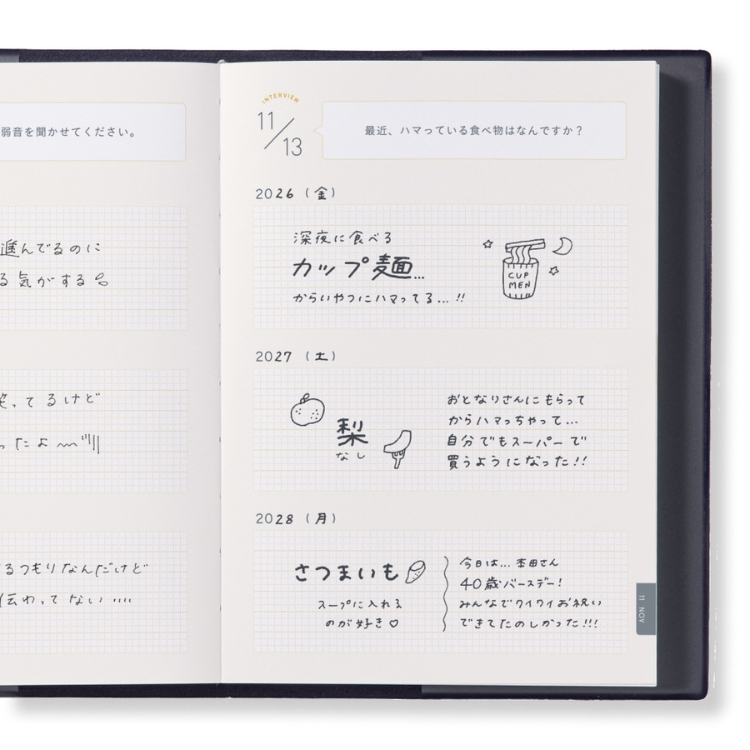 弱音を聞かせてください。
進んでるのに
る気がする
笑、てるけど
ったよ
るつもりなんだけど
伝わってない....
INTERVIEW
11/13
最近、ハマっている食べ物はなんですか？
2026（金）
深夜に食べる
カップ麺...
からいやつにハマってる...!!
CUP
MEN
2027（土）
梨
なし
おとなりさんにもらって
からハマっちゃって...
自分でもスーパーで
買うようになった!!
2028（月）
さつまいも
スープに入れる
のが好き♡
今日は...本田さん
40歳バースデー!
みんなでワイワイお祝い
できてたのしかった!!!
11 NOV